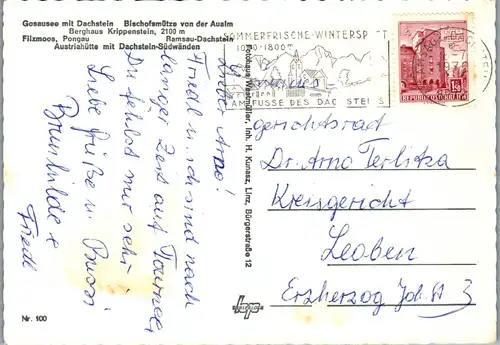 Gosausee mit Dachstein Bischofsmütze von der Aualm
Berghaus Krippenstein, 2100 m
Filzmoos, Pongau Ramsau-Dachstein
Austriahütte mit Dachstein-Südwänden
Lieber Arno!
Friedl u. ich sind nach
langer Zeit auf Tournee
Du fehlst mir sehr
Liebe Grüße u. Bussi
Brunhilde +
Friedl
Nr. 100
Fotohaus Westmüller, Inh. H. Kunasz, Linz, Bürgerstraße 12
SOMMERFRISCHE-WINTERSP
1000-1800m
AM FUSSE DES DACHSTEINS
REPUBLIK ÖSTERREICH
gerichtsrat
Dr. Arno Terlitza
Kreisgericht
Leoben
Erzherzog Joh. St 3